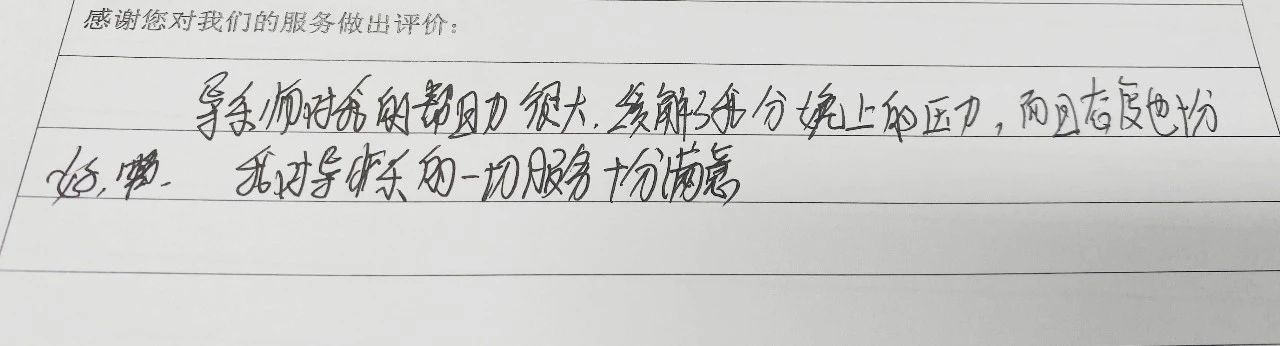 感谢您对我们的服务做出评价:
导乐师对我的帮助力很大,缓解了我分娩上的压力,而且态度也十分
好,嘞. 我对导乐的一切服务十分满意